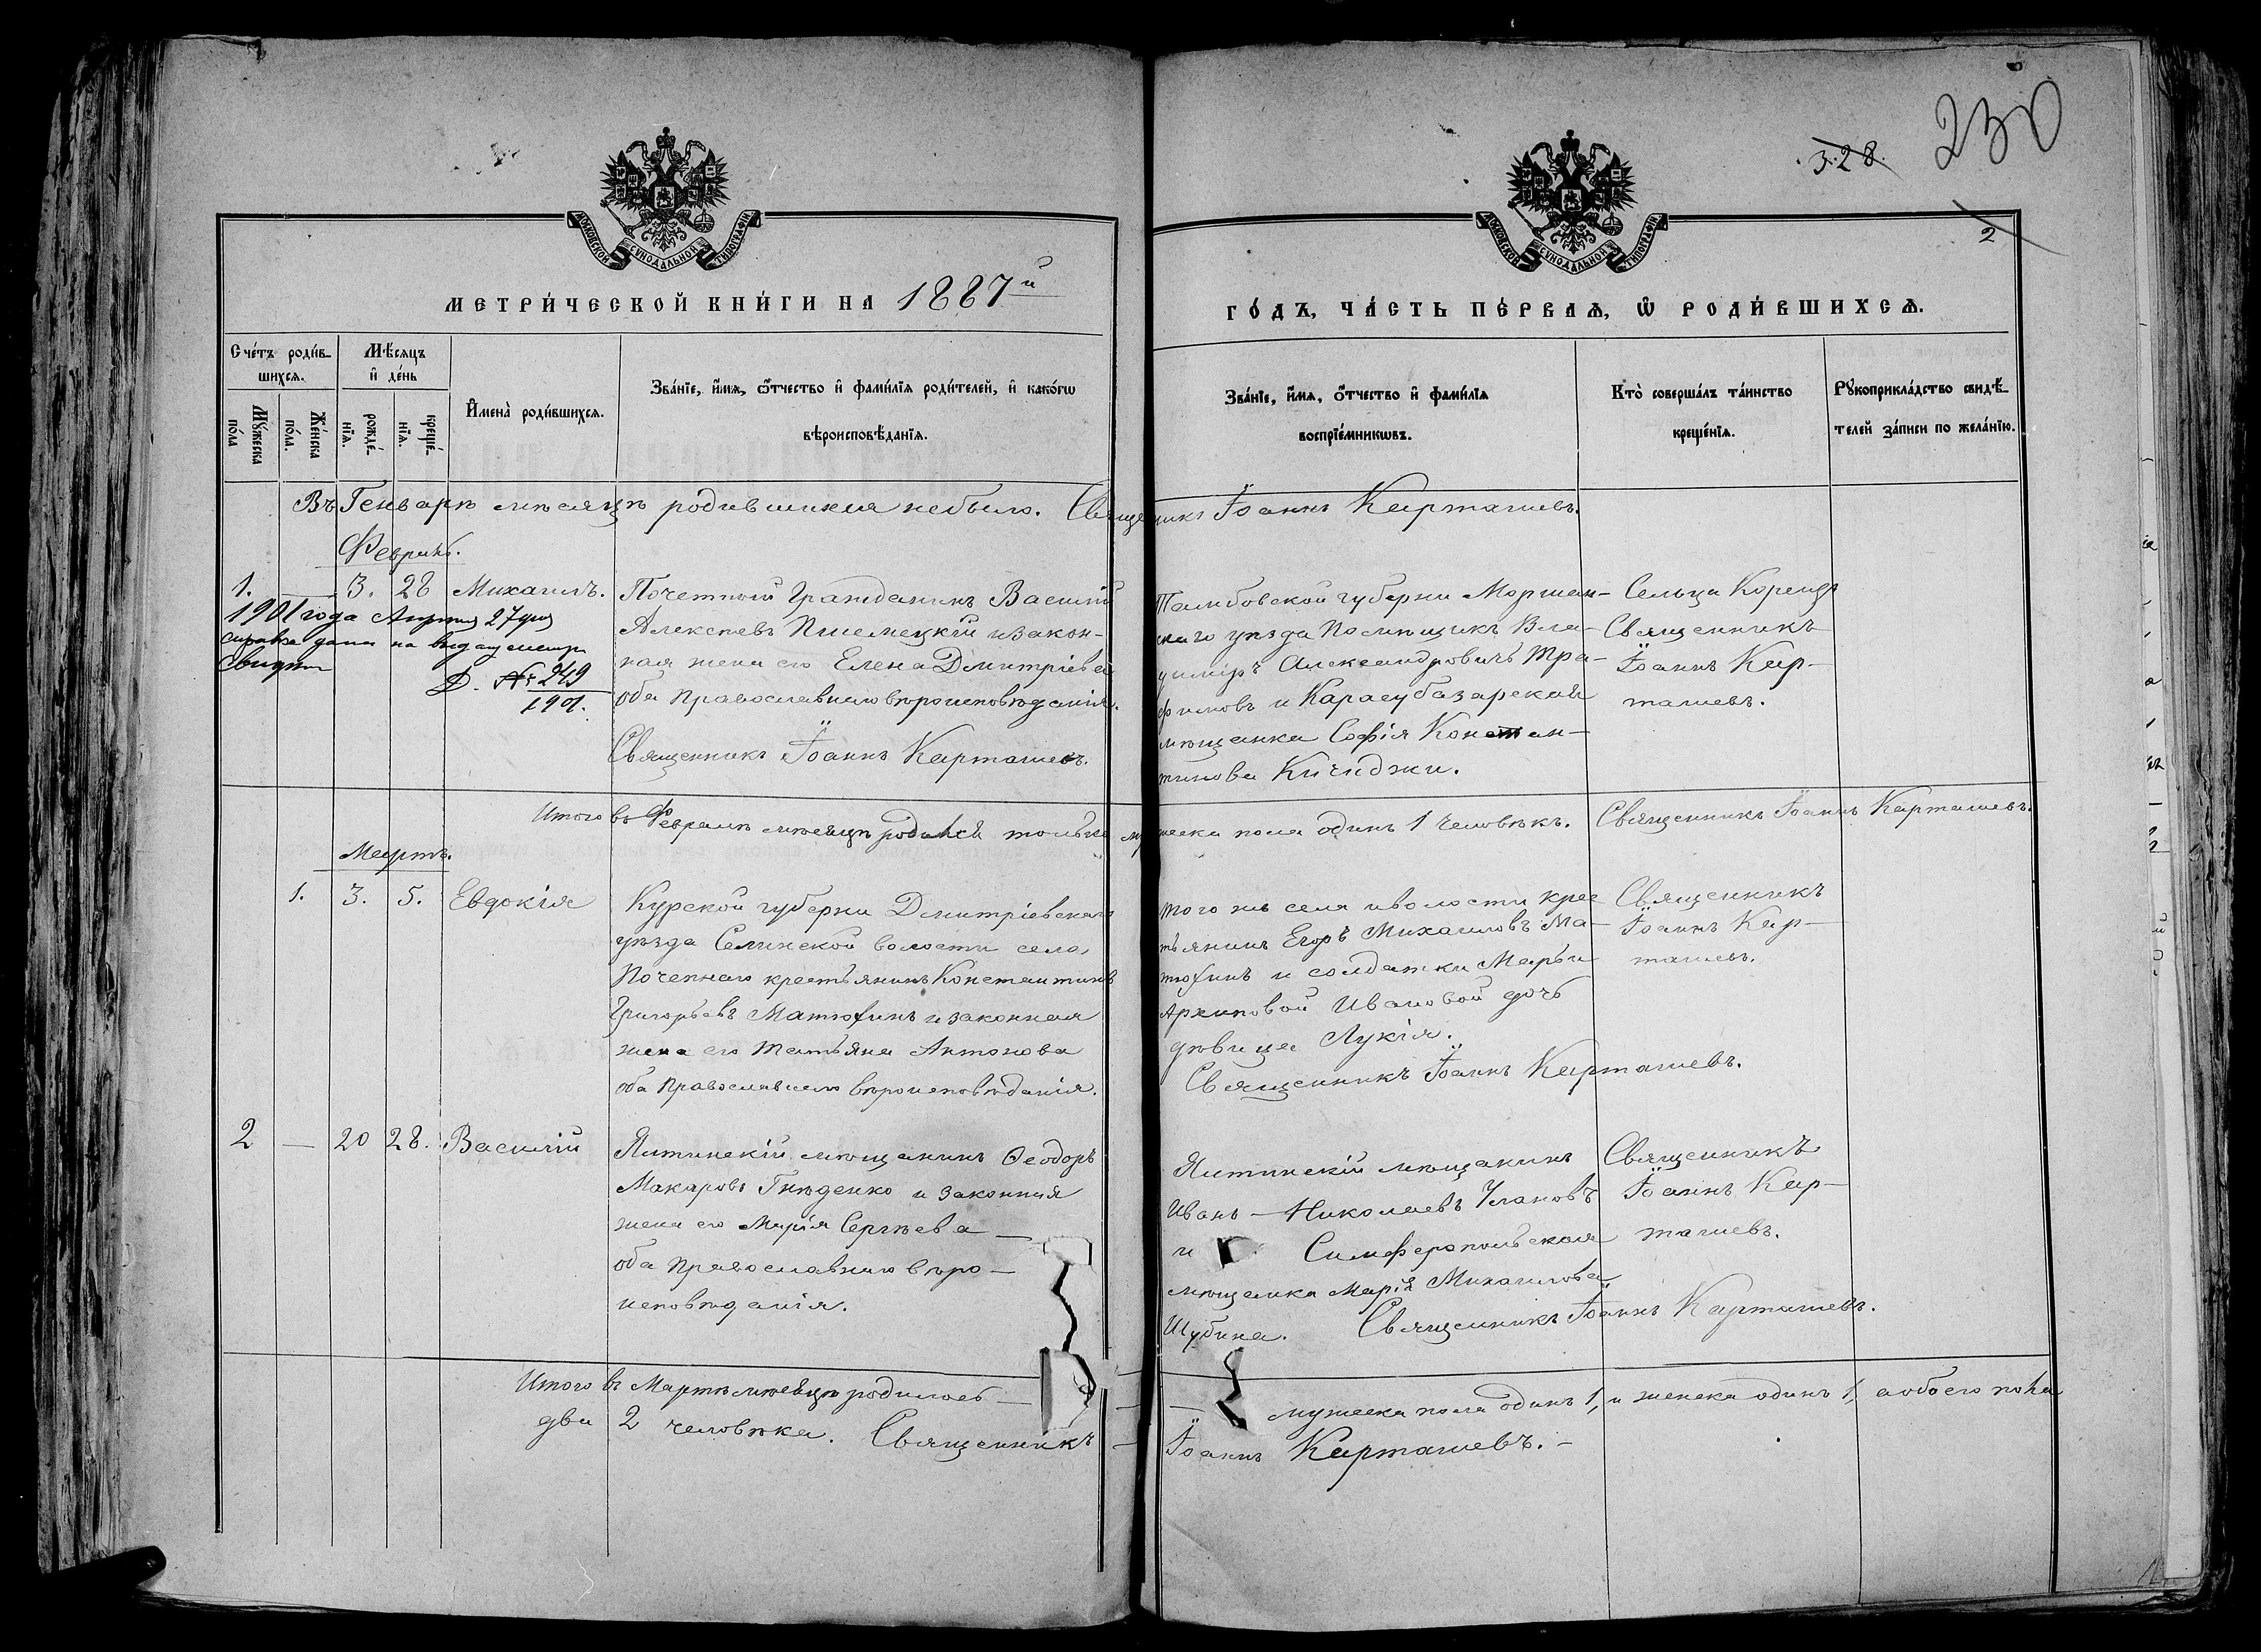 230
3.28.
2
МОСКОВСКОЙ СѴНОДАЛЬНОЙ ТИПОГРАФІИ
МОСКОВСКОЙ СѴНОДАЛЬНОЙ ТИПОГРАФІИ
МЕТРИ́ЧЕСКОЙ КНИ́ГИ НА 1887й
ГО́ДЪ, ЧА́СТЬ ПЕ́РВАѦ, Ѿ РОДИ́ВШИХСѦ.
Сче́тъ роди́в-
шихсѧ.
Мꙋ́жеска
по́ла
Же́нска
по́ла.
Мѣ́сѧцъ
и҆ де́нь
рожде́-
нїѧ.
креще́-
нїѧ.
И҆мена̀ роди́вшихсѧ.
Зва́нїе, и҆́мѧ, ѻ҆́тчество и҆ фами́лїѧ роди́телей, и҆ како́гѡ
вѣроисповѣ́данїѧ.
Зва́нїе, и҆́мѧ, ѻ҆́тчество и҆ фами́лїѧ
воспрїе́мникѡвъ.
Кто̀ соверша́лъ та́инство
креще́нїѧ.
Рꙋкоприкла́дство свидѣ́-
телей за́писи по жела́нїю.
Въ Генварѣ мѣсяцѣ родившихся небыло. Священникъ Іоаннъ Карташевъ.
Февраль.
1. — 3. 28 Михаилъ.
1901 года Апреля 27 дня
справка дана на выдачу метри
свидѣт
Д. № 249
1901.
Почетный Гражданинъ Василій
Алексѣевъ Пшемецкій и закон-
ная жена его Елена Дмитріева
оба Православнаго вѣроисповѣданія.
Священникъ Іоаннъ Карташевъ.
Тамбовской губерни Моршан-
скаго уѣзда Помѣщикъ Вла-
димiръ Александровичъ Тра-
филовъ и Карасубазарская
мѣщанка Софія Констан-
тинова Кичиджи.
Сельца Кореизъ
Священникъ
Іоаннъ Кар-
ташевъ.
Итого въ Февралѣ мѣсяцѣ родился только мужеска пола одинъ 1 человѣкъ. Священникъ Іоаннъ Карташевъ.
Мартъ.
1. 3. 5. Евдокія
Курской губерни Дмитріевскаго
уѣзда Селинской волости села
Почепнаго крестьянинъ Константинъ
Григорьевъ Матюхинъ и законная
жена его Татьяна Антонова
оба Православнаго вѣроисповѣданія.
того же села и волости крес
тьянинъ Егоръ Михаиловъ Ма-
тюхинъ и солдатки Марьи
Архиповой Ивановой дочь
дѣвица Лукія.
Священникъ Іоаннъ Карташевъ.
Священникъ
Іоаннъ Кар-
ташевъ.
2 — 20 28. Василій
Ялтинскій мѣщанинъ Ѳеодоръ
Макаровъ Гнѣденко и законная
жена его Марія Сергѣева —
оба Православнаго вѣро-
исповѣданія.
Ялтинскій мѣщанинъ
Иванъ — Николаевъ Улановъ
и Симферопольская
мѣщанка Марія Михаилова
Шубина. Священникъ Іоаннъ Карташевъ.
Священникъ
Іоаннъ Кар-
ташевъ.
Итого въ Мартѣ мѣсяцѣ родилось — мужеска пола одинъ 1, и женска одинъ 1, а обоего пола
два 2 человѣка. Священникъ — Іоаннъ Карташевъ. —